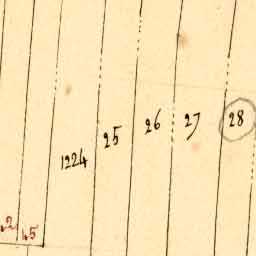 1224 25 26 27 28
45